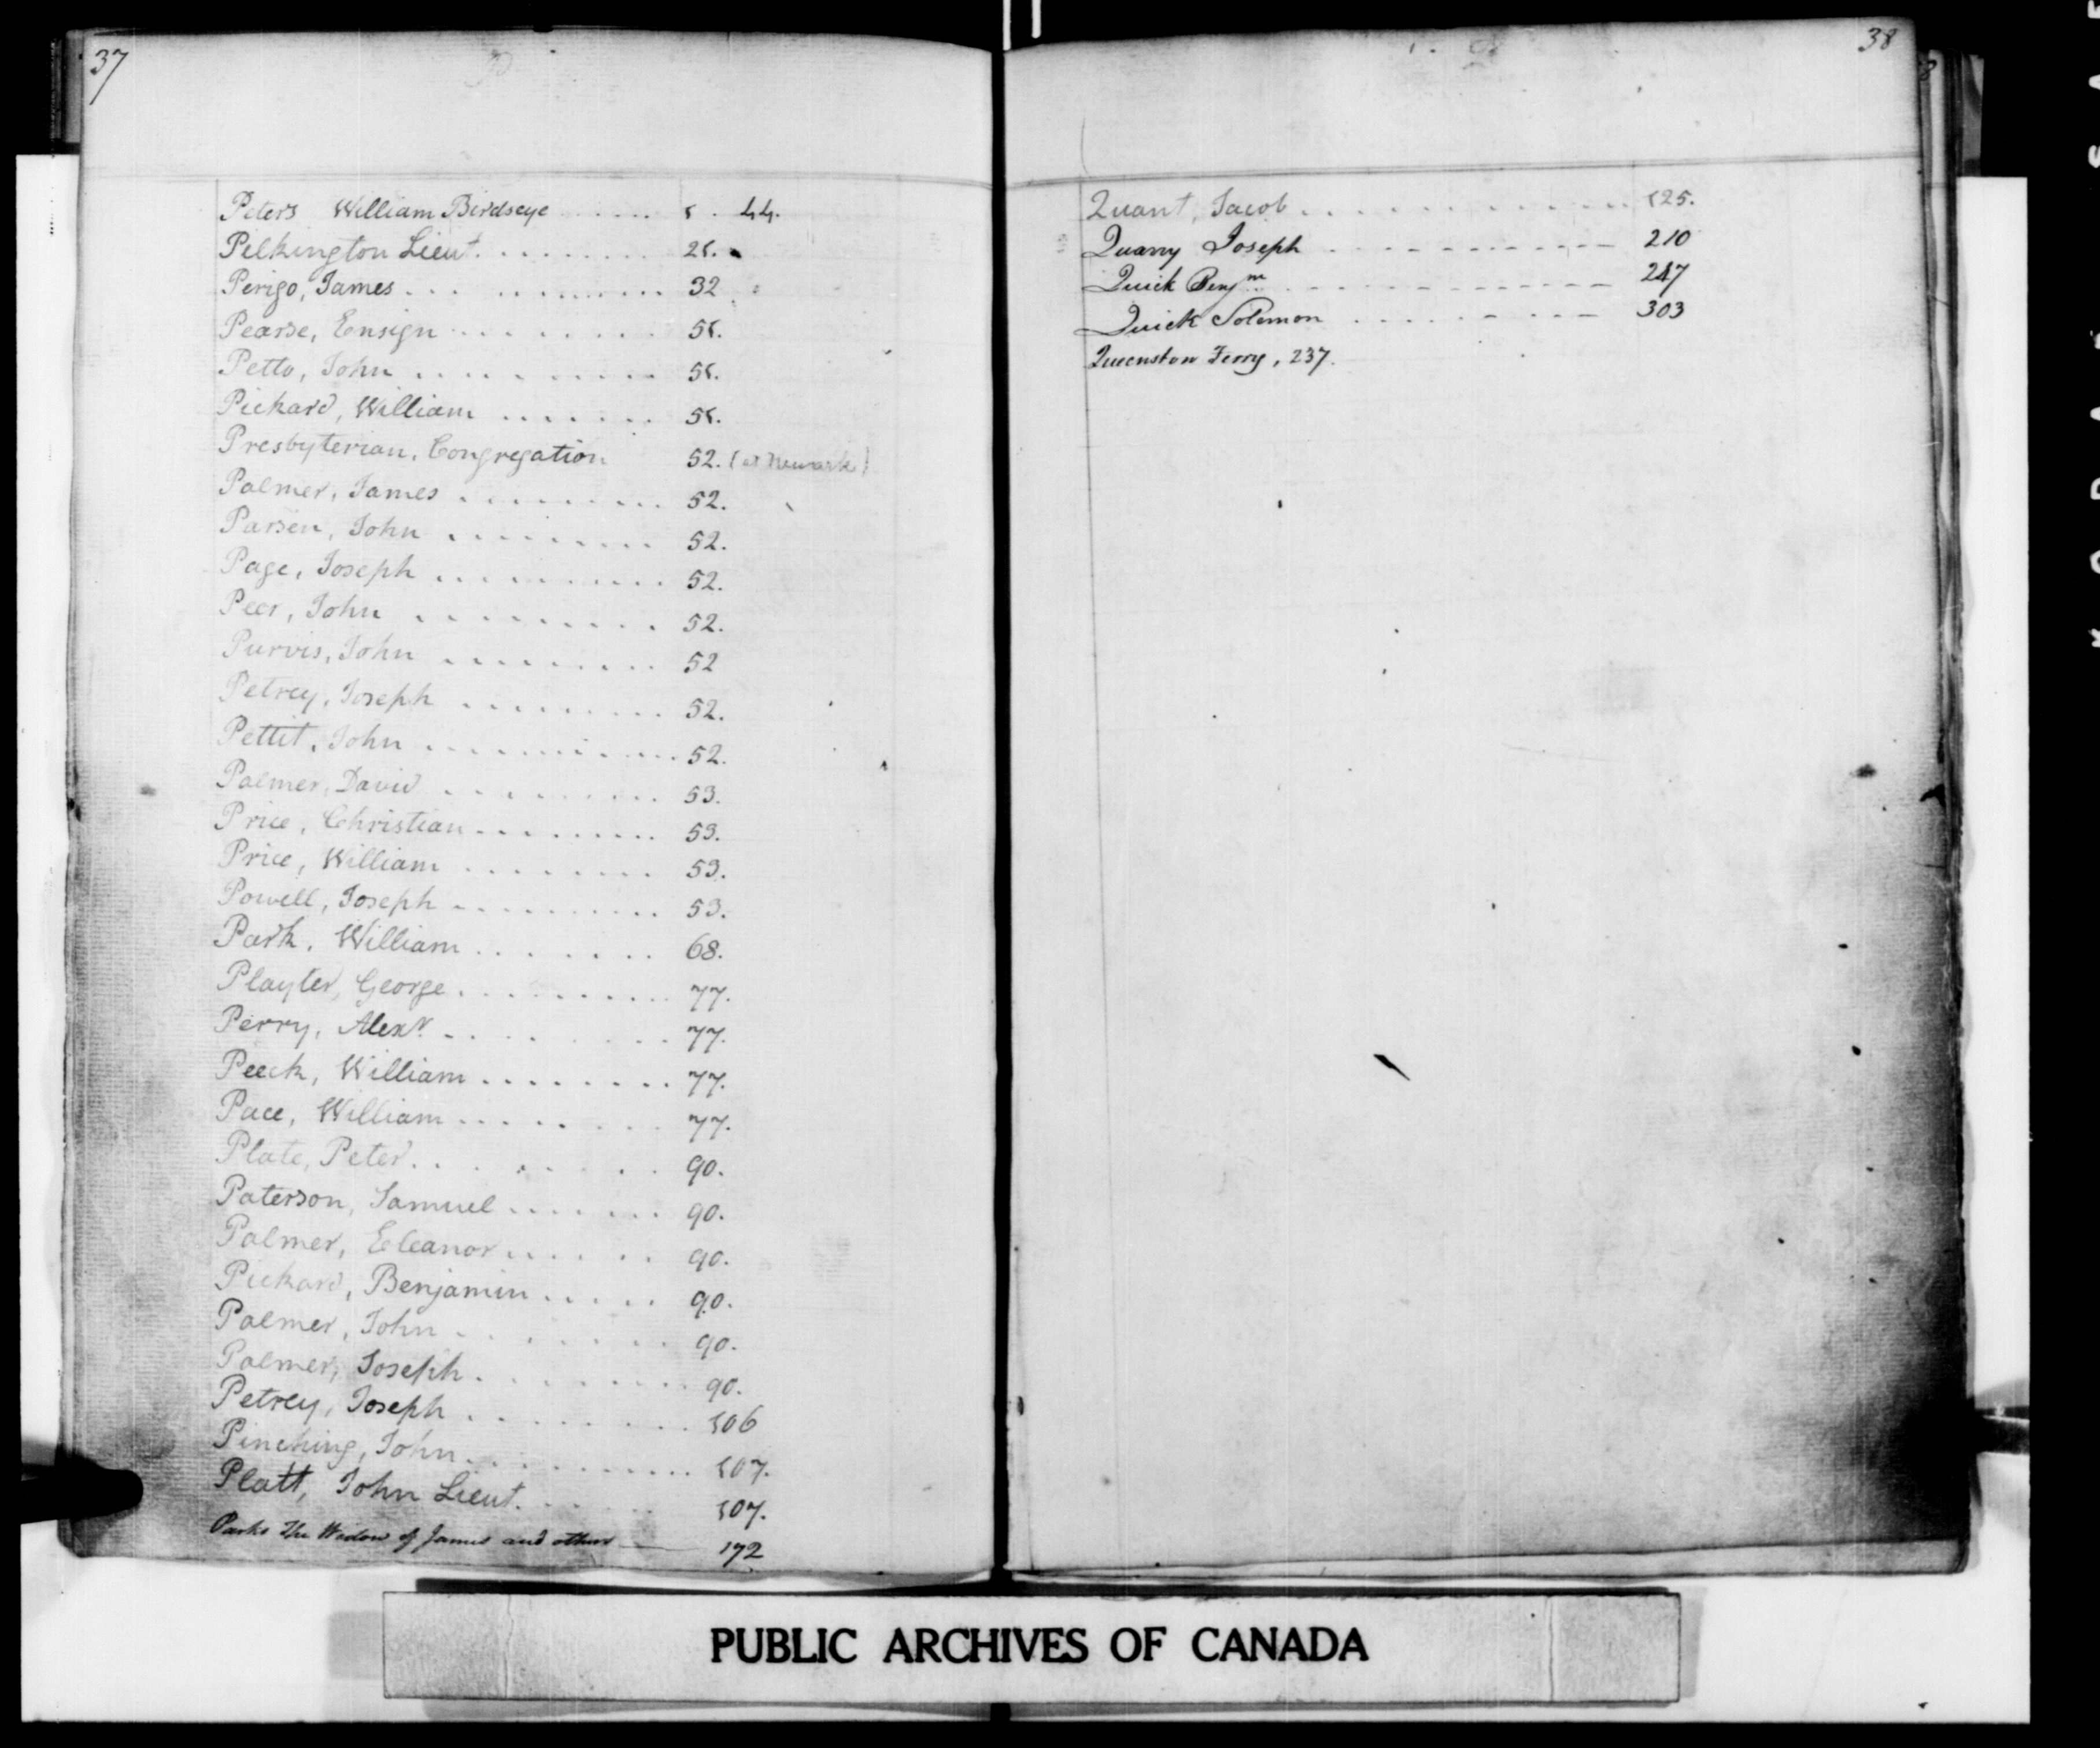 37
Peters William Birdseye ...... 1 . 44.
Pilkington Lieut. ........ 21.
Perigo, James ... .......... 32
Pearse, Ensign ........ 51.
Petto, John .......... 51.
Pickard, William ....... 51.
Presbyterian, Congregation 52. (at Newark)
Palmer, James ......... 52.
Parsen, John ......... 52.
Page, Joseph .......... 52.
Peer, John ......... 52.
Purvis, John ......... 52
Petrey, Joseph ......... 52.
Pettit, John ............ 52.
Palmer, David ......... 53.
Price, Christian ......... 53.
Price, William ........ 53.
Powell, Joseph .......... 53.
Park, William ....... 68.
Playter, George .......... 77.
Perry, Alexr. ........ 77.
Peeck, William ........ 77.
Pace, William ........ 77.
Plate, Peter ........ 90.
Paterson, Samuel ....... 90.
Palmer, Eleanor ...... 90.
Pickard, Benjamin ..... 90.
Palmer, John ........ 90.
Palmer, Joseph ........ 90.
Petrey, Joseph ......... 106
Pinching, John .......... 107.
Platt, John Lieut. ...... 107.
Parks The Widow of James and others — 172
38
Quant, Jacob ............. 125.
Quarry Joseph ------------ 210
Quick Benjm ------------- 247
Quick Solomon ---------- 303
Queenston Ferry, 237.
PUBLIC ARCHIVES OF CANADA